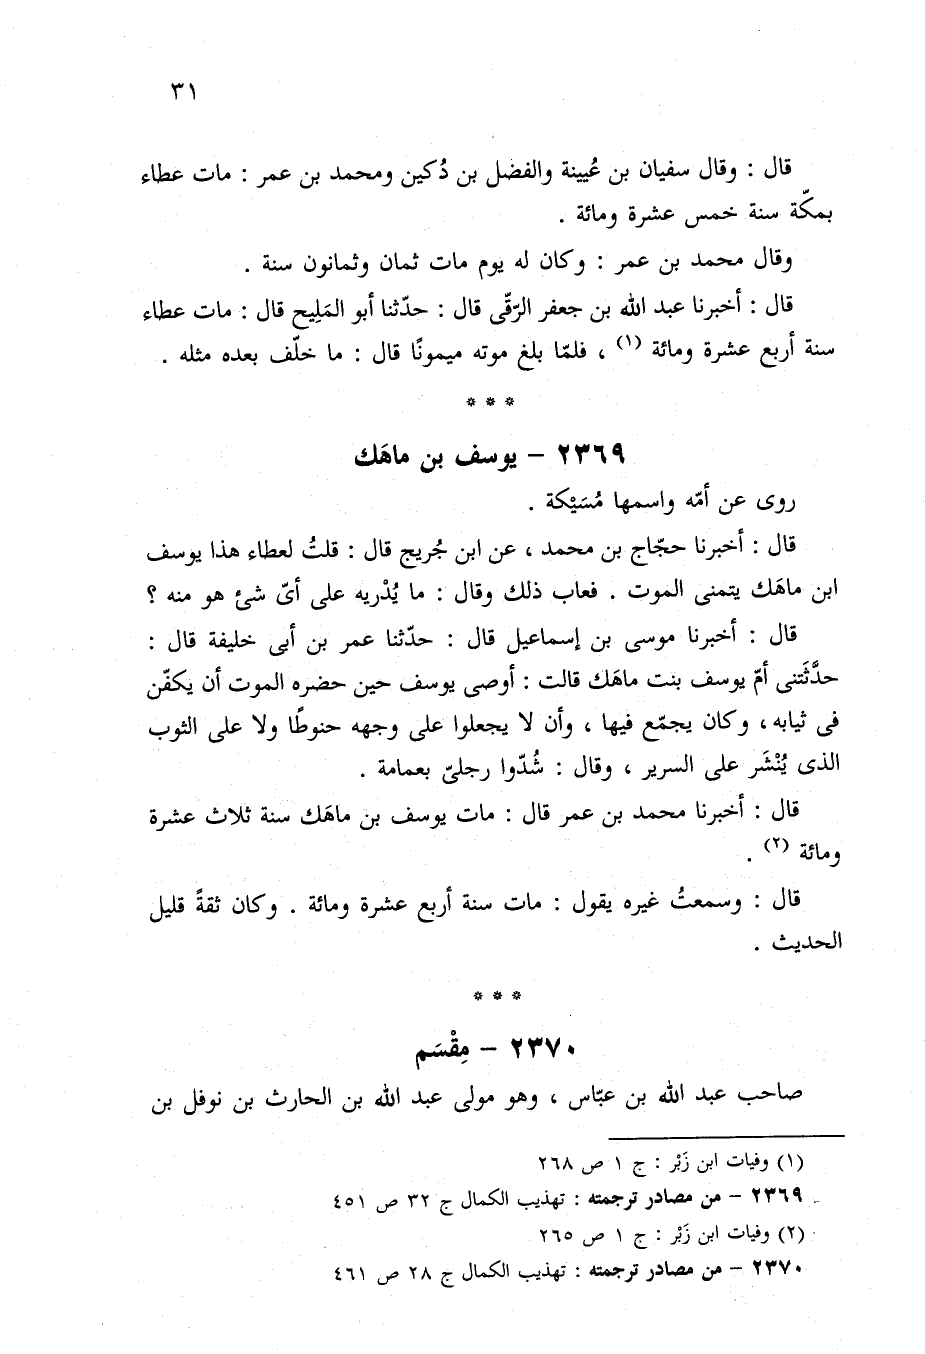 ٣١
قال : وقال سفيان بن عُيينة والفضل بن دُكين ومحمد بن عمر : مات عطاء
بمكّة سنة خمس عشرة ومائة .
وقال محمد بن عمر : وكان له يوم مات ثمان وثمانون سنة .
قال : أخبرنا عبد الله بن جعفر الرّقّى قال : حدّثنا أبو المَلِيح قال : مات عطاء
سنة أربع عشرة ومائة (١) ، فلمّا بلغ موته ميمونًا قال : ما خلّف بعده مثله .
* * *
٢٣٦٩ - يوسف بن ماهَك
روى عن أمّه واسمها مُسَيْكة .
قال : أخبرنا حجّاج بن محمد ، عن ابن جُريج قال : قلتُ لعطاء هذا يوسف
ابن ماهَك يتمنى الموت . فعاب ذلك وقال : ما يُدْريه على أىّ شئ هو منه ؟
قال : أخبرنا موسى بن إسماعيل قال : حدّثنا عمر بن أبى خليفة قال :
حدَّثَتنى أمّ يوسف بنت ماهَك قالت : أوصى يوسف حين حضره الموت أن يكفّن
فى ثيابه ، وكان يجمّع فيها ، وأن لا يجعلوا على وجهه حنوطًا ولا على الثوب
الذى يُنْشَر على السرير ، وقال : شُدّوا رجلىّ بعمامة .
قال : أخبرنا محمد بن عمر قال : مات يوسف بن ماهَك سنة ثلاث عشرة
ومائة (٢) .
قال : وسمعتُ غيره يقول : مات سنة أربع عشرة ومائة . وكان ثقةً قليل
الحديث .
* * *
٢٣٧٠ - مِقْسَم
صاحب عبد الله بن عبّاس ، وهو مولى عبد الله بن الحارث بن نوفل بن
(١) وفيات ابن زَبْر : ج ١ ص ٢٦٨
٢٣٦٩ - من مصادر ترجمته : تهذيب الكمال ج ٣٢ ص ٤٥١
(٢) وفيات ابن زَبْر : ج ١ ص ٢٦٥
٢٣٧٠ - من مصادر ترجمته : تهذيب الكمال ج ٢٨ ص ٤٦١